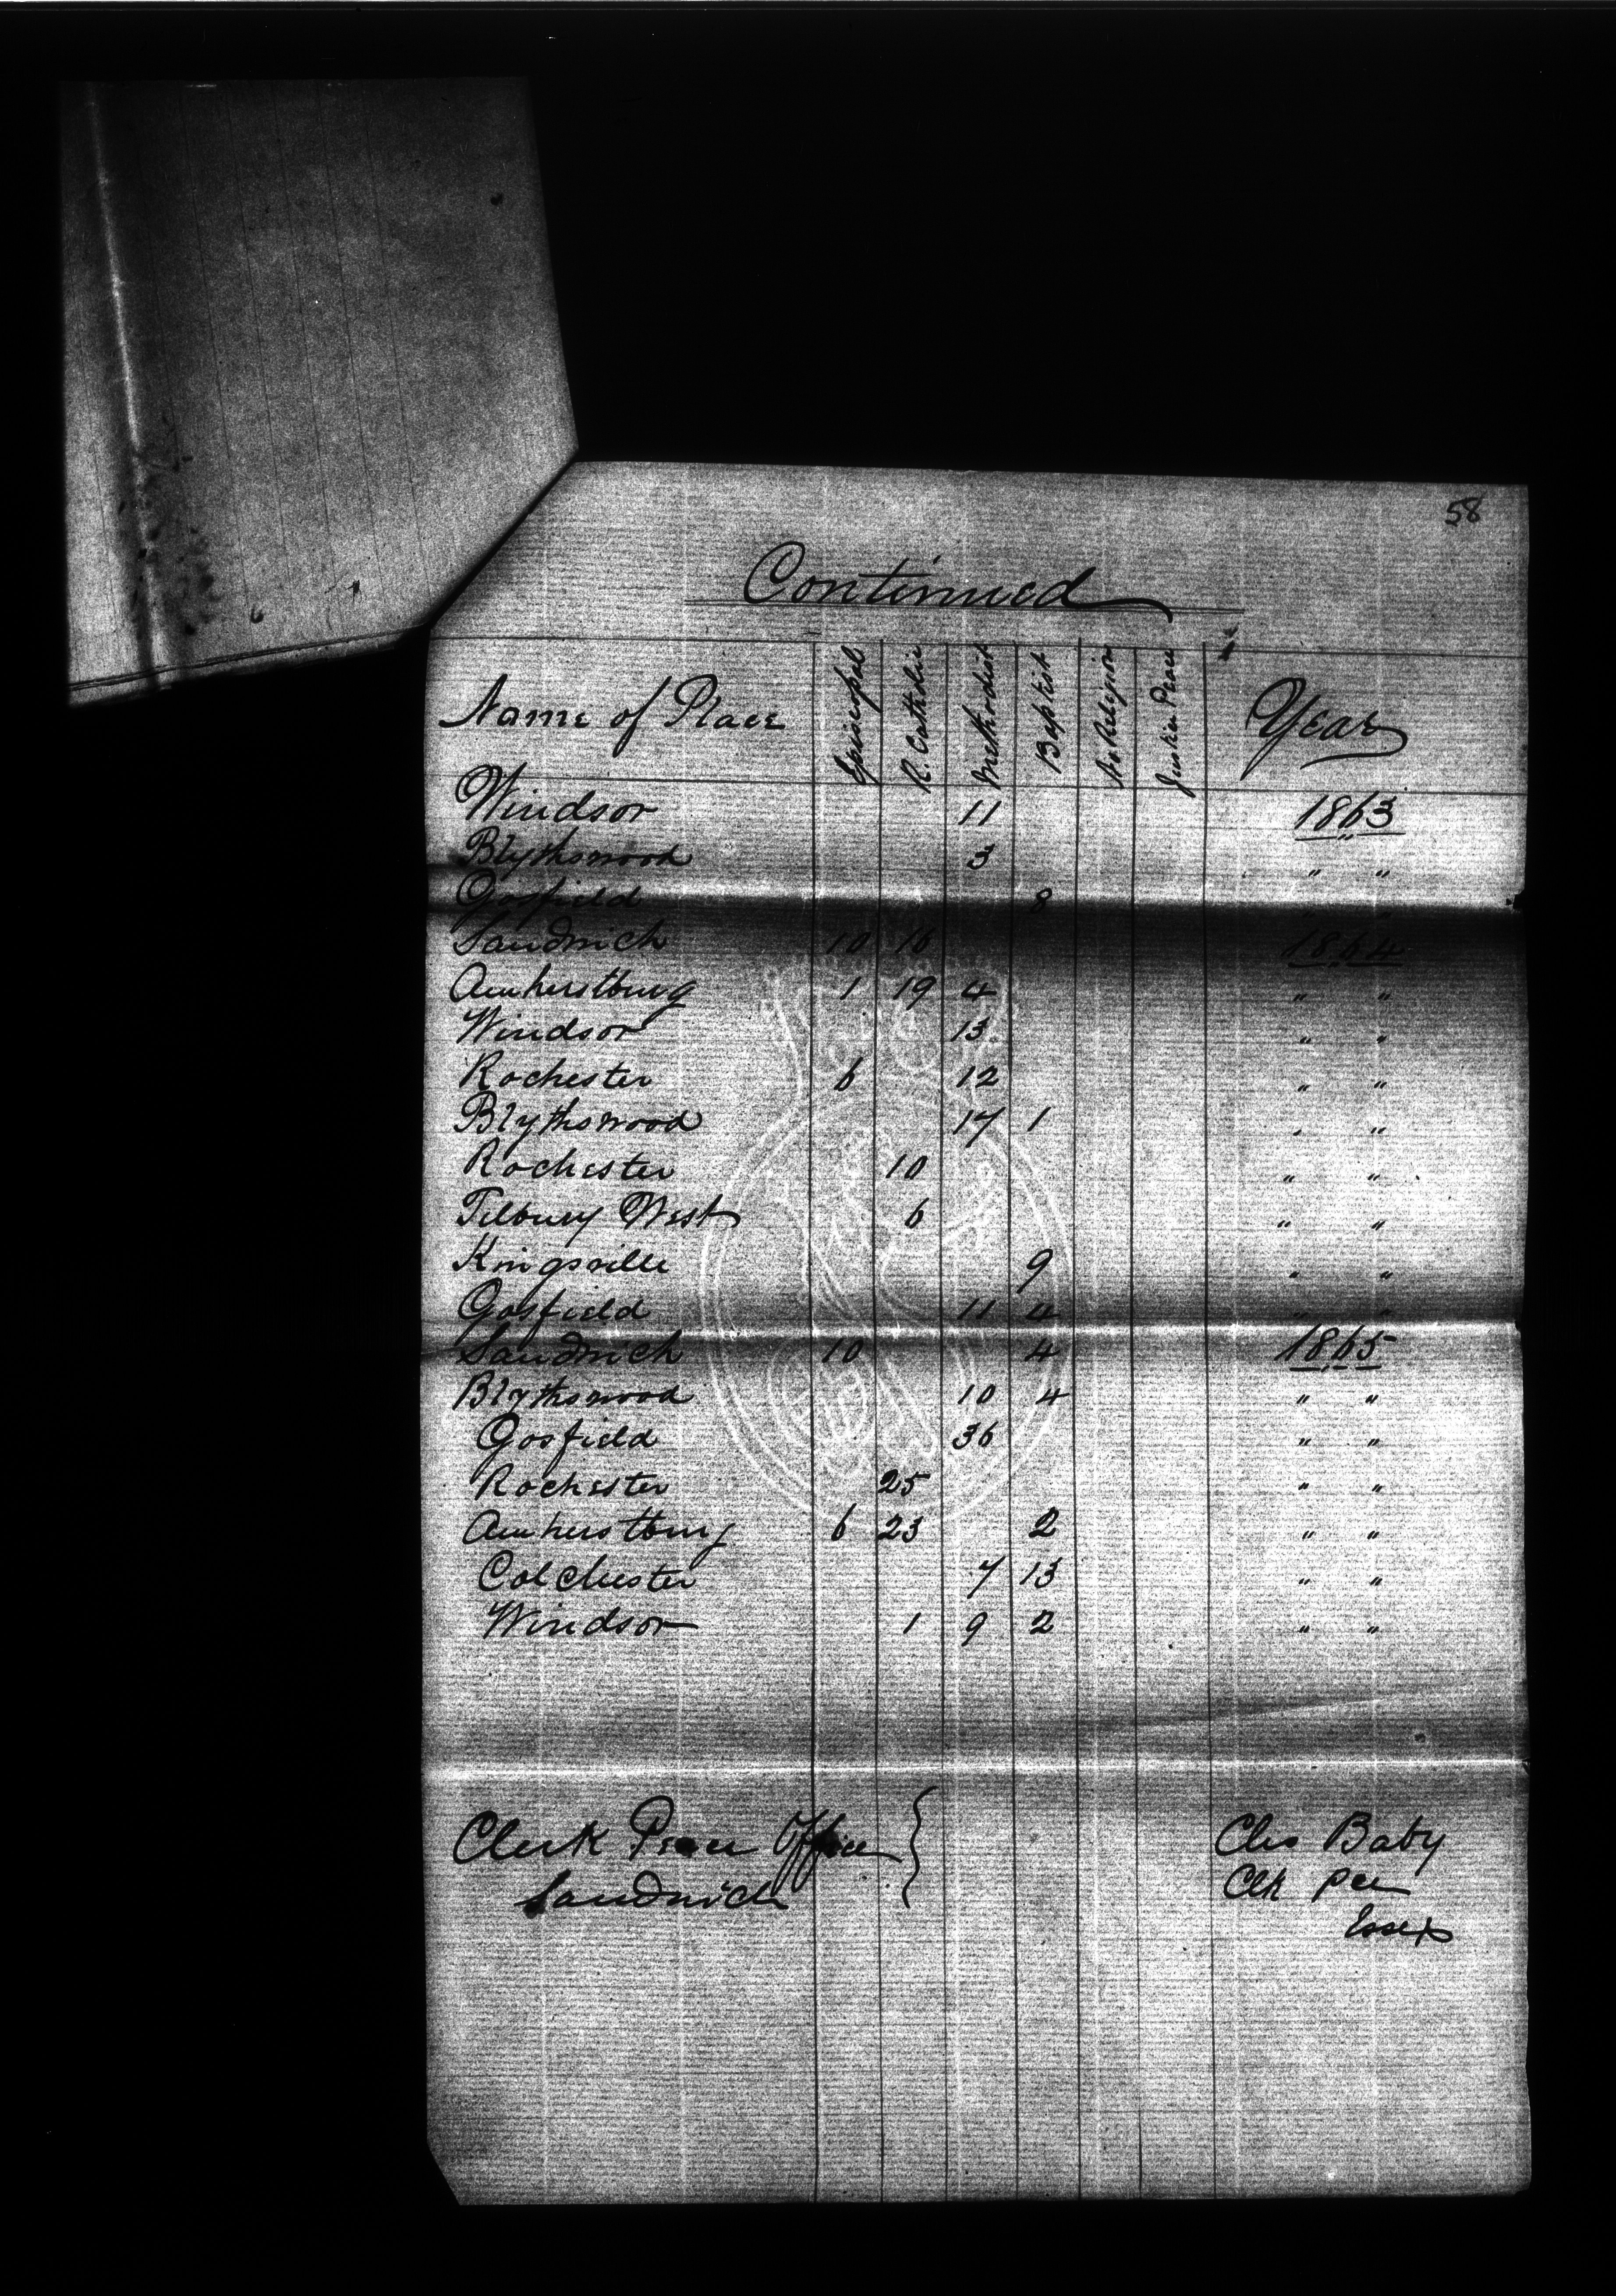 58
Continued
Name of Place Episcopal R. Catholic Methodist Baptist No Religion Year
Windsor 11 1863
Blythswood 3 " "
Gosfield 8 " "
Sandwich 10 16 1864
Amherstburg 1 19 4 " "
Windsor 13 " "
Rochester 6 12 " "
Blythswood 17 1 " "
Rochester 10 " "
Tilbury West 6 " "
Kingsville 9 " "
Gosfield 11 4 " "
Sandwich 10 4 1865
Blythswood 10 4 " "
Gosfield 36 " "
Rochester 25 " "
Amherstburg 6 23 2 " "
Colchester 7 13 " "
Windsor 1 9 2 " "
Clerk Peace Office } Chs Baby
Sandwich Clk Pce
Essex